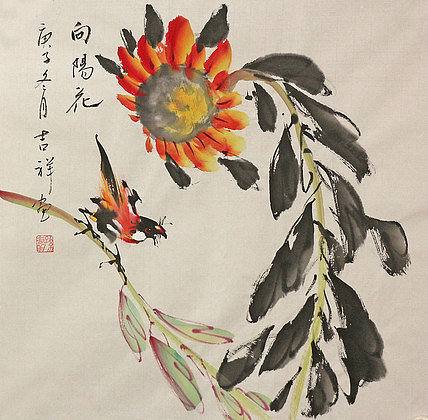 向陽花
庚子冬月吉祥